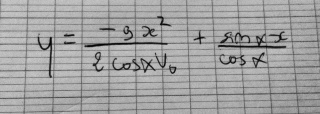 y = \frac{-g x^2}{2 \cos \alpha V_0} + \frac{\sin \alpha x}{\cos \alpha}